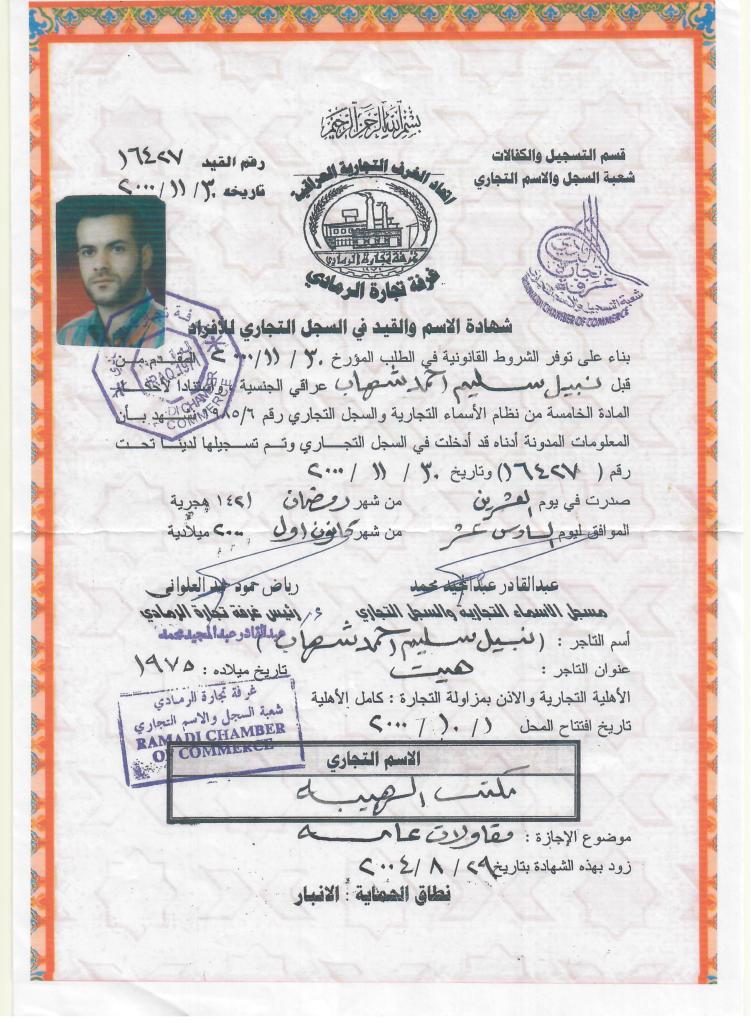 بسم الله الرحمن الرحيم
قسم التسجيل والكفالات
شعبة السجل والاسم التجاري
اتحاد الغرف التجارية العراقية
غرفة تجارة الرمادي
غرفة تجارة الرمادي
رقم القيد ١٦٤٢٧
تاريخه ٣٠ / ١١ / ٢٠٠٠
شعبة التسجيل والاسم التجاري
RAMADI CHAMBER OF COMMERCE
شهادة الاسم والقيد في السجل التجاري للأفراد
بناء على توفر الشروط القانونية في الطلب المؤرخ ٣٠ / ١١ / ٢٠٠٠ المقدم من
قبل نبيل سليم احمد شهاب عراقي الجنسية واستنادا لأحكام
المادة الخامسة من نظام الأسماء التجارية والسجل التجاري رقم ٦/٩٨٥ نشهد بأن
المعلومات المدونة أدناه قد أدخلت في السجل التجاري وتم تسجيلها لدينا تحت
رقم ( ١٦٤٢٧ ) وتاريخ ٣٠ / ١١ / ٢٠٠٠
IRAQ 1971
DI CHAMBER
COMMERCE
صدرت في يوم العشرين من شهر رمضان ١٤٢١ هجرية
الموافق ليوم السادس عشر من شهر كانون اول ٢٠٠٠ ميلادية
عبدالقادر عبدالمجيد محمد
رياض حمود العلواني
مسجل الاسماء التجارية والسجل التجاري
رئيس غرفة تجارة الرمادي
عبدالقادر عبدالمجيد محمد
أسم التاجر : ( نبيل سليم احمد شهاب )
عنوان التاجر : هيت تاريخ ميلاده : ١٩٧٥
الأهلية التجارية والاذن بمزاولة التجارة : كامل الأهلية
تاريخ افتتاح المحل ١ / ١٠ / ٢٠٠٠
غرفة تجارة الرمادي
شعبة السجل والاسم التجاري
RAMADI CHAMBER
OF COMMERCE
الاسم التجاري
مكتب الهيبه
موضوع الإجازة : مقاولات عامه
زود بهذه الشهادة بتاريخ ٢٩ / ٨ / ٢٠٠٤
نطاق الحماية : الانبار